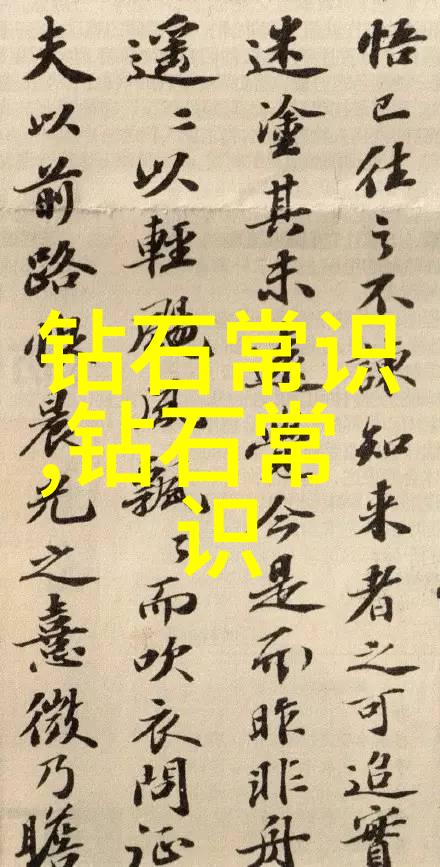 悟已往之不諫知來者之可追實
迷塗其未遠覺今是而昨非舟
遥〻以輕颺風飄〻而吹衣問征
夫以前路恨晨光之熹微乃瞻
钻石常识
,钻石常
识